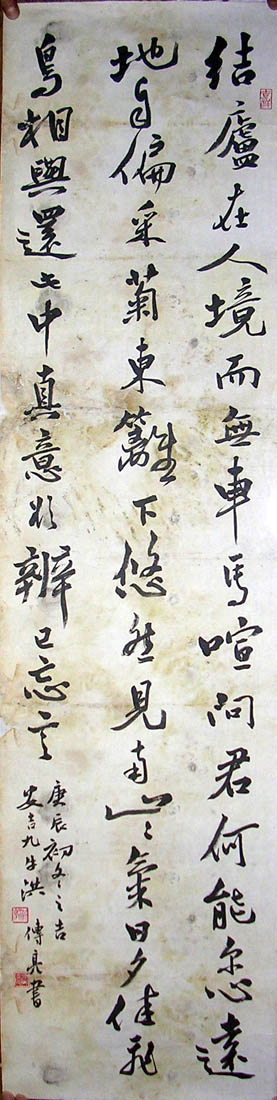 結廬在人境而無車馬喧問君何能尔心遠
地自偏采菊東籬下悠然見南山々氣日夕佳飛
鳥相與還此中真意欲辨已忘言
庚辰初冬之吉
安吉九生洪
傳亮書